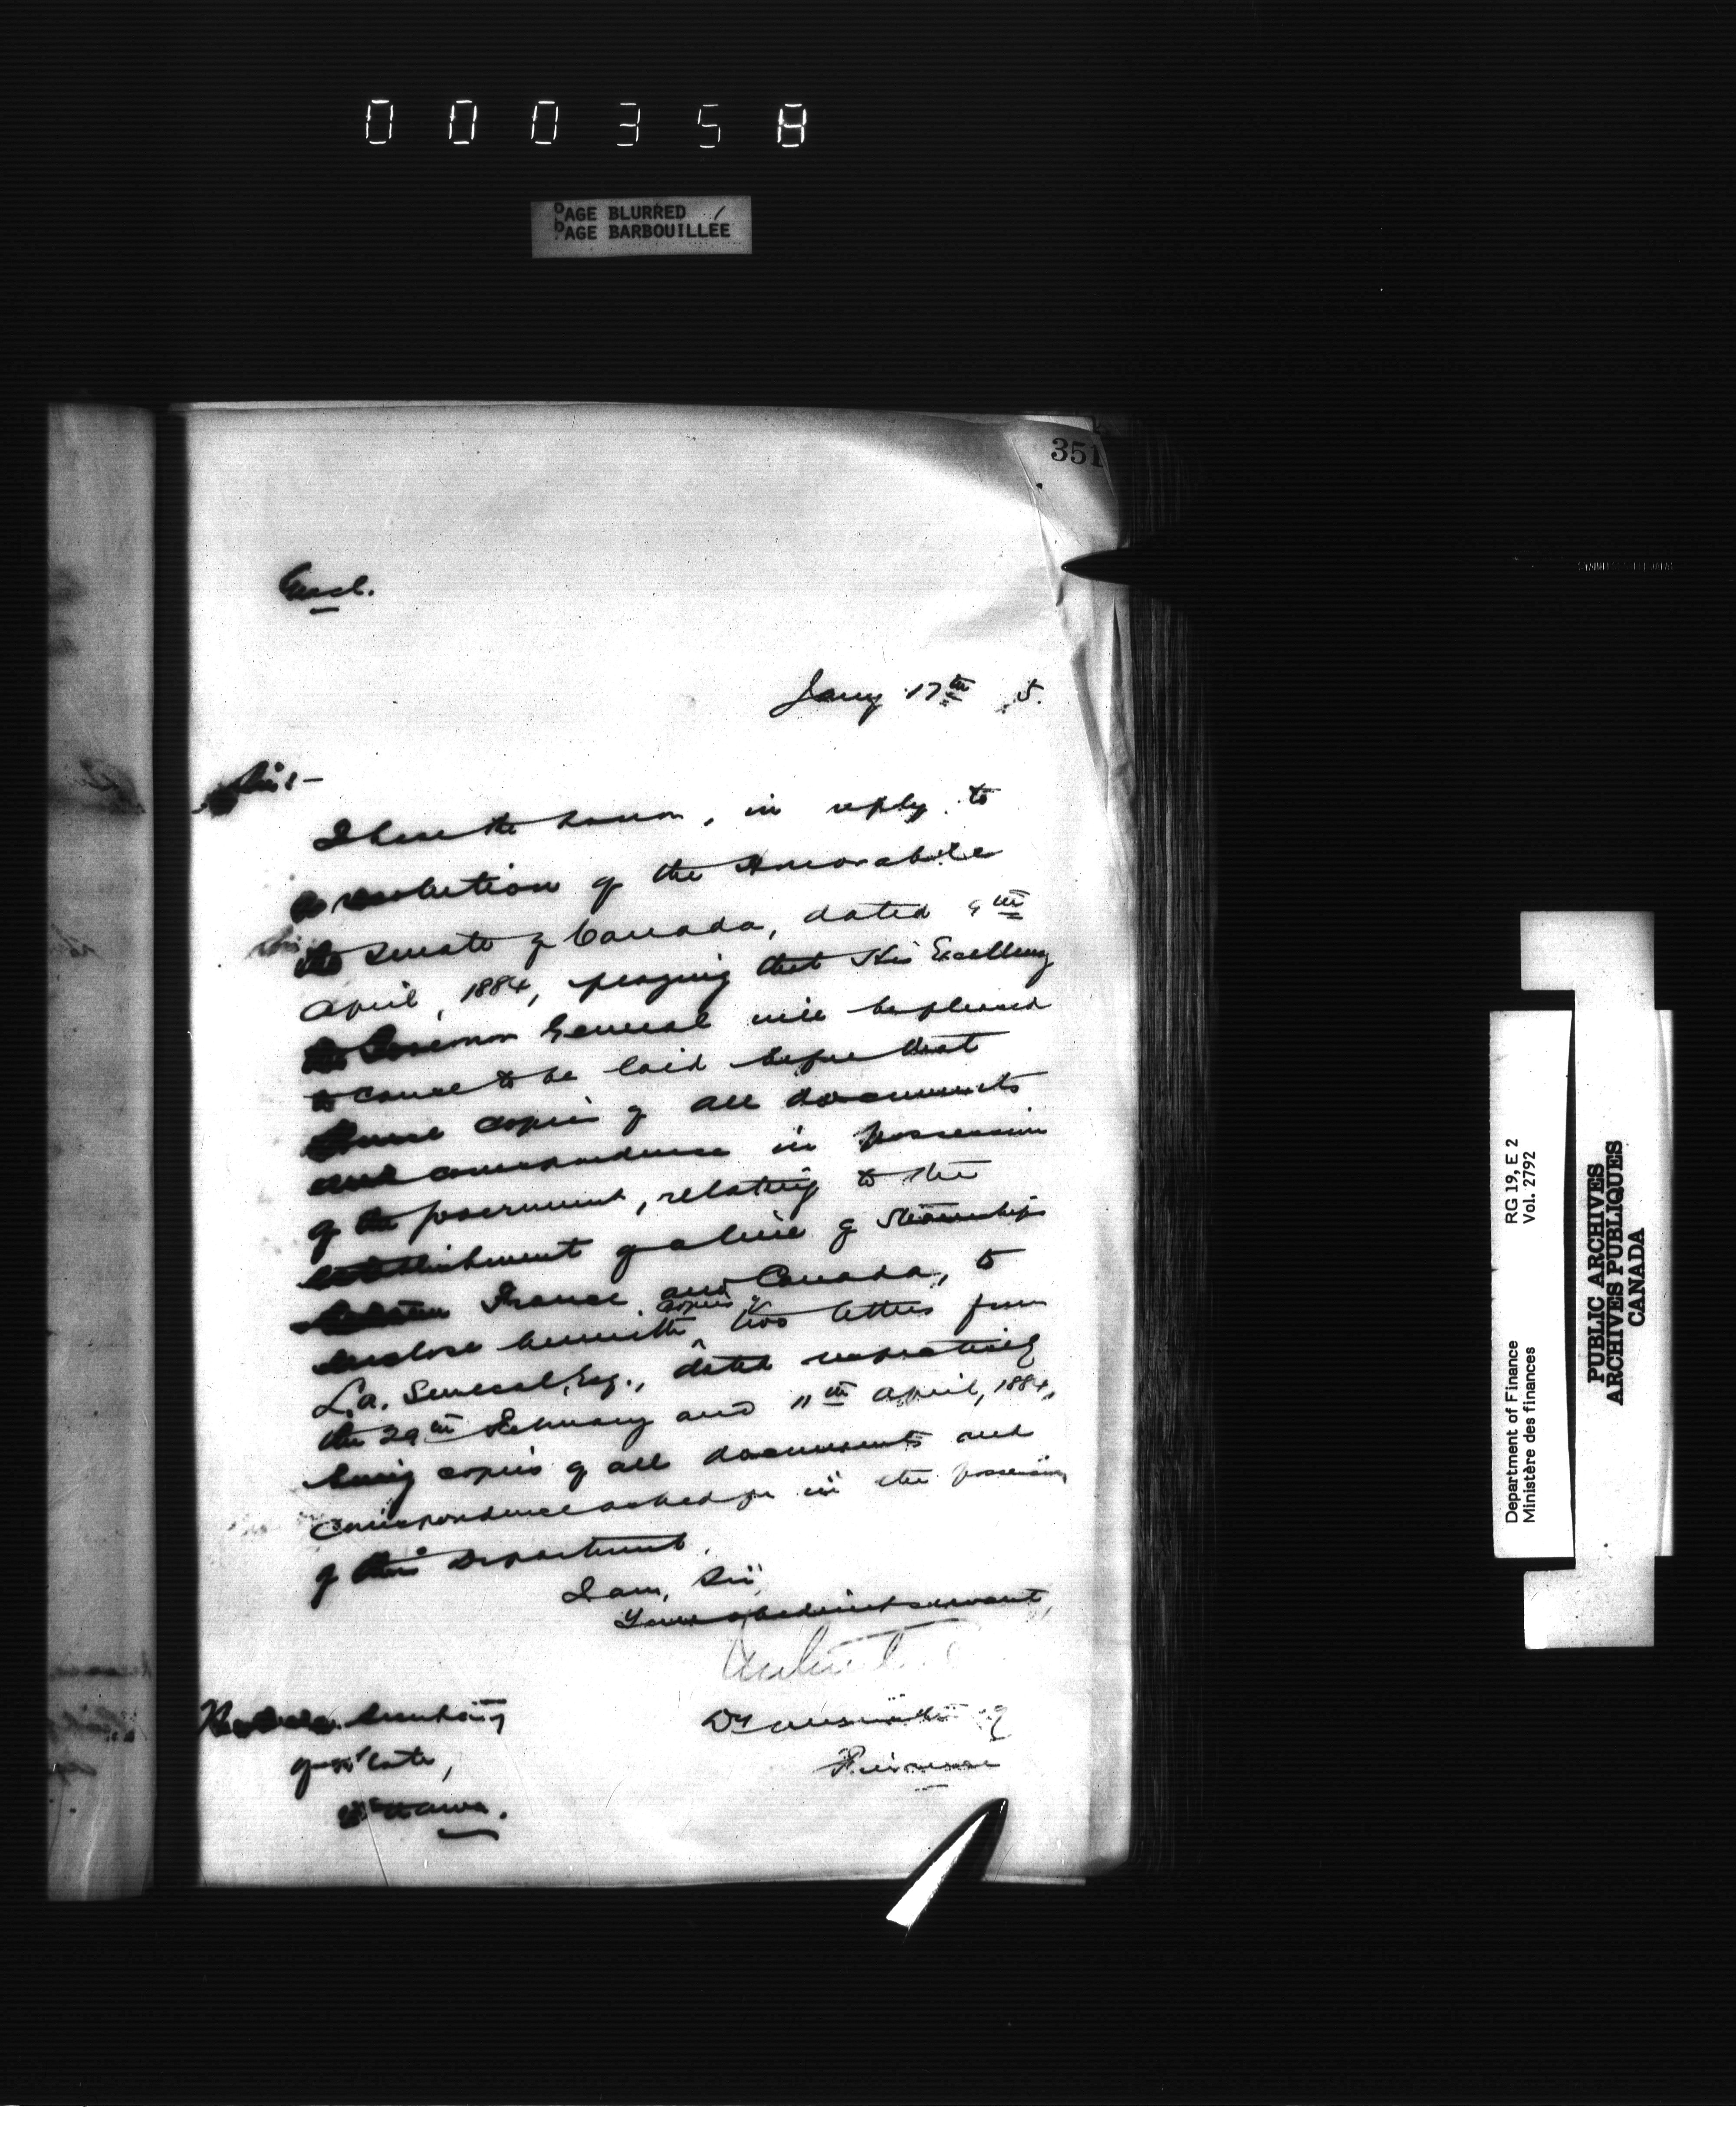 000358
PAGE BLURRED
PAGE BARBOUILLÉE
351
Encl.
Jany 17th 5.
Sir:-
I have the honor, in reply to
a resolution of the Honorable
the Senate of Canada, dated 9th
April, 1884, praying that His Excellency
the Governor General will be pleased
to cause to be laid before that
House copies of all documents
and correspondence in possession
of the government, relating to the
establishment of a line of Steamships
between France and Canada, to
enclose herewith copies of two letters from
L.A. Senecal, Esq., dated respectively
the 29th February and 11th April, 1884,
being copies of all documents and
correspondence asked for in the possession
of this Department.
I am, Sir,
Your obedient servant,
Dy Minister of
Finance
of State,
Ottawa.
Department of Finance RG 19, E 2
Ministère des finances Vol. 2792
PUBLIC ARCHIVES
ARCHIVES PUBLIQUES
CANADA